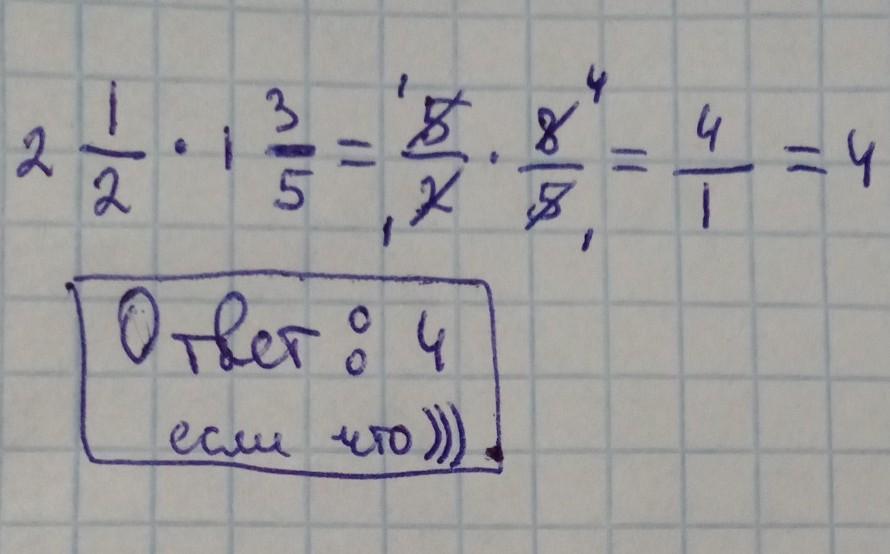 2 1/2 · 1 3/5 = 5/2 · 8/5 = 4/1 = 4
Ответ: 4
если что)))